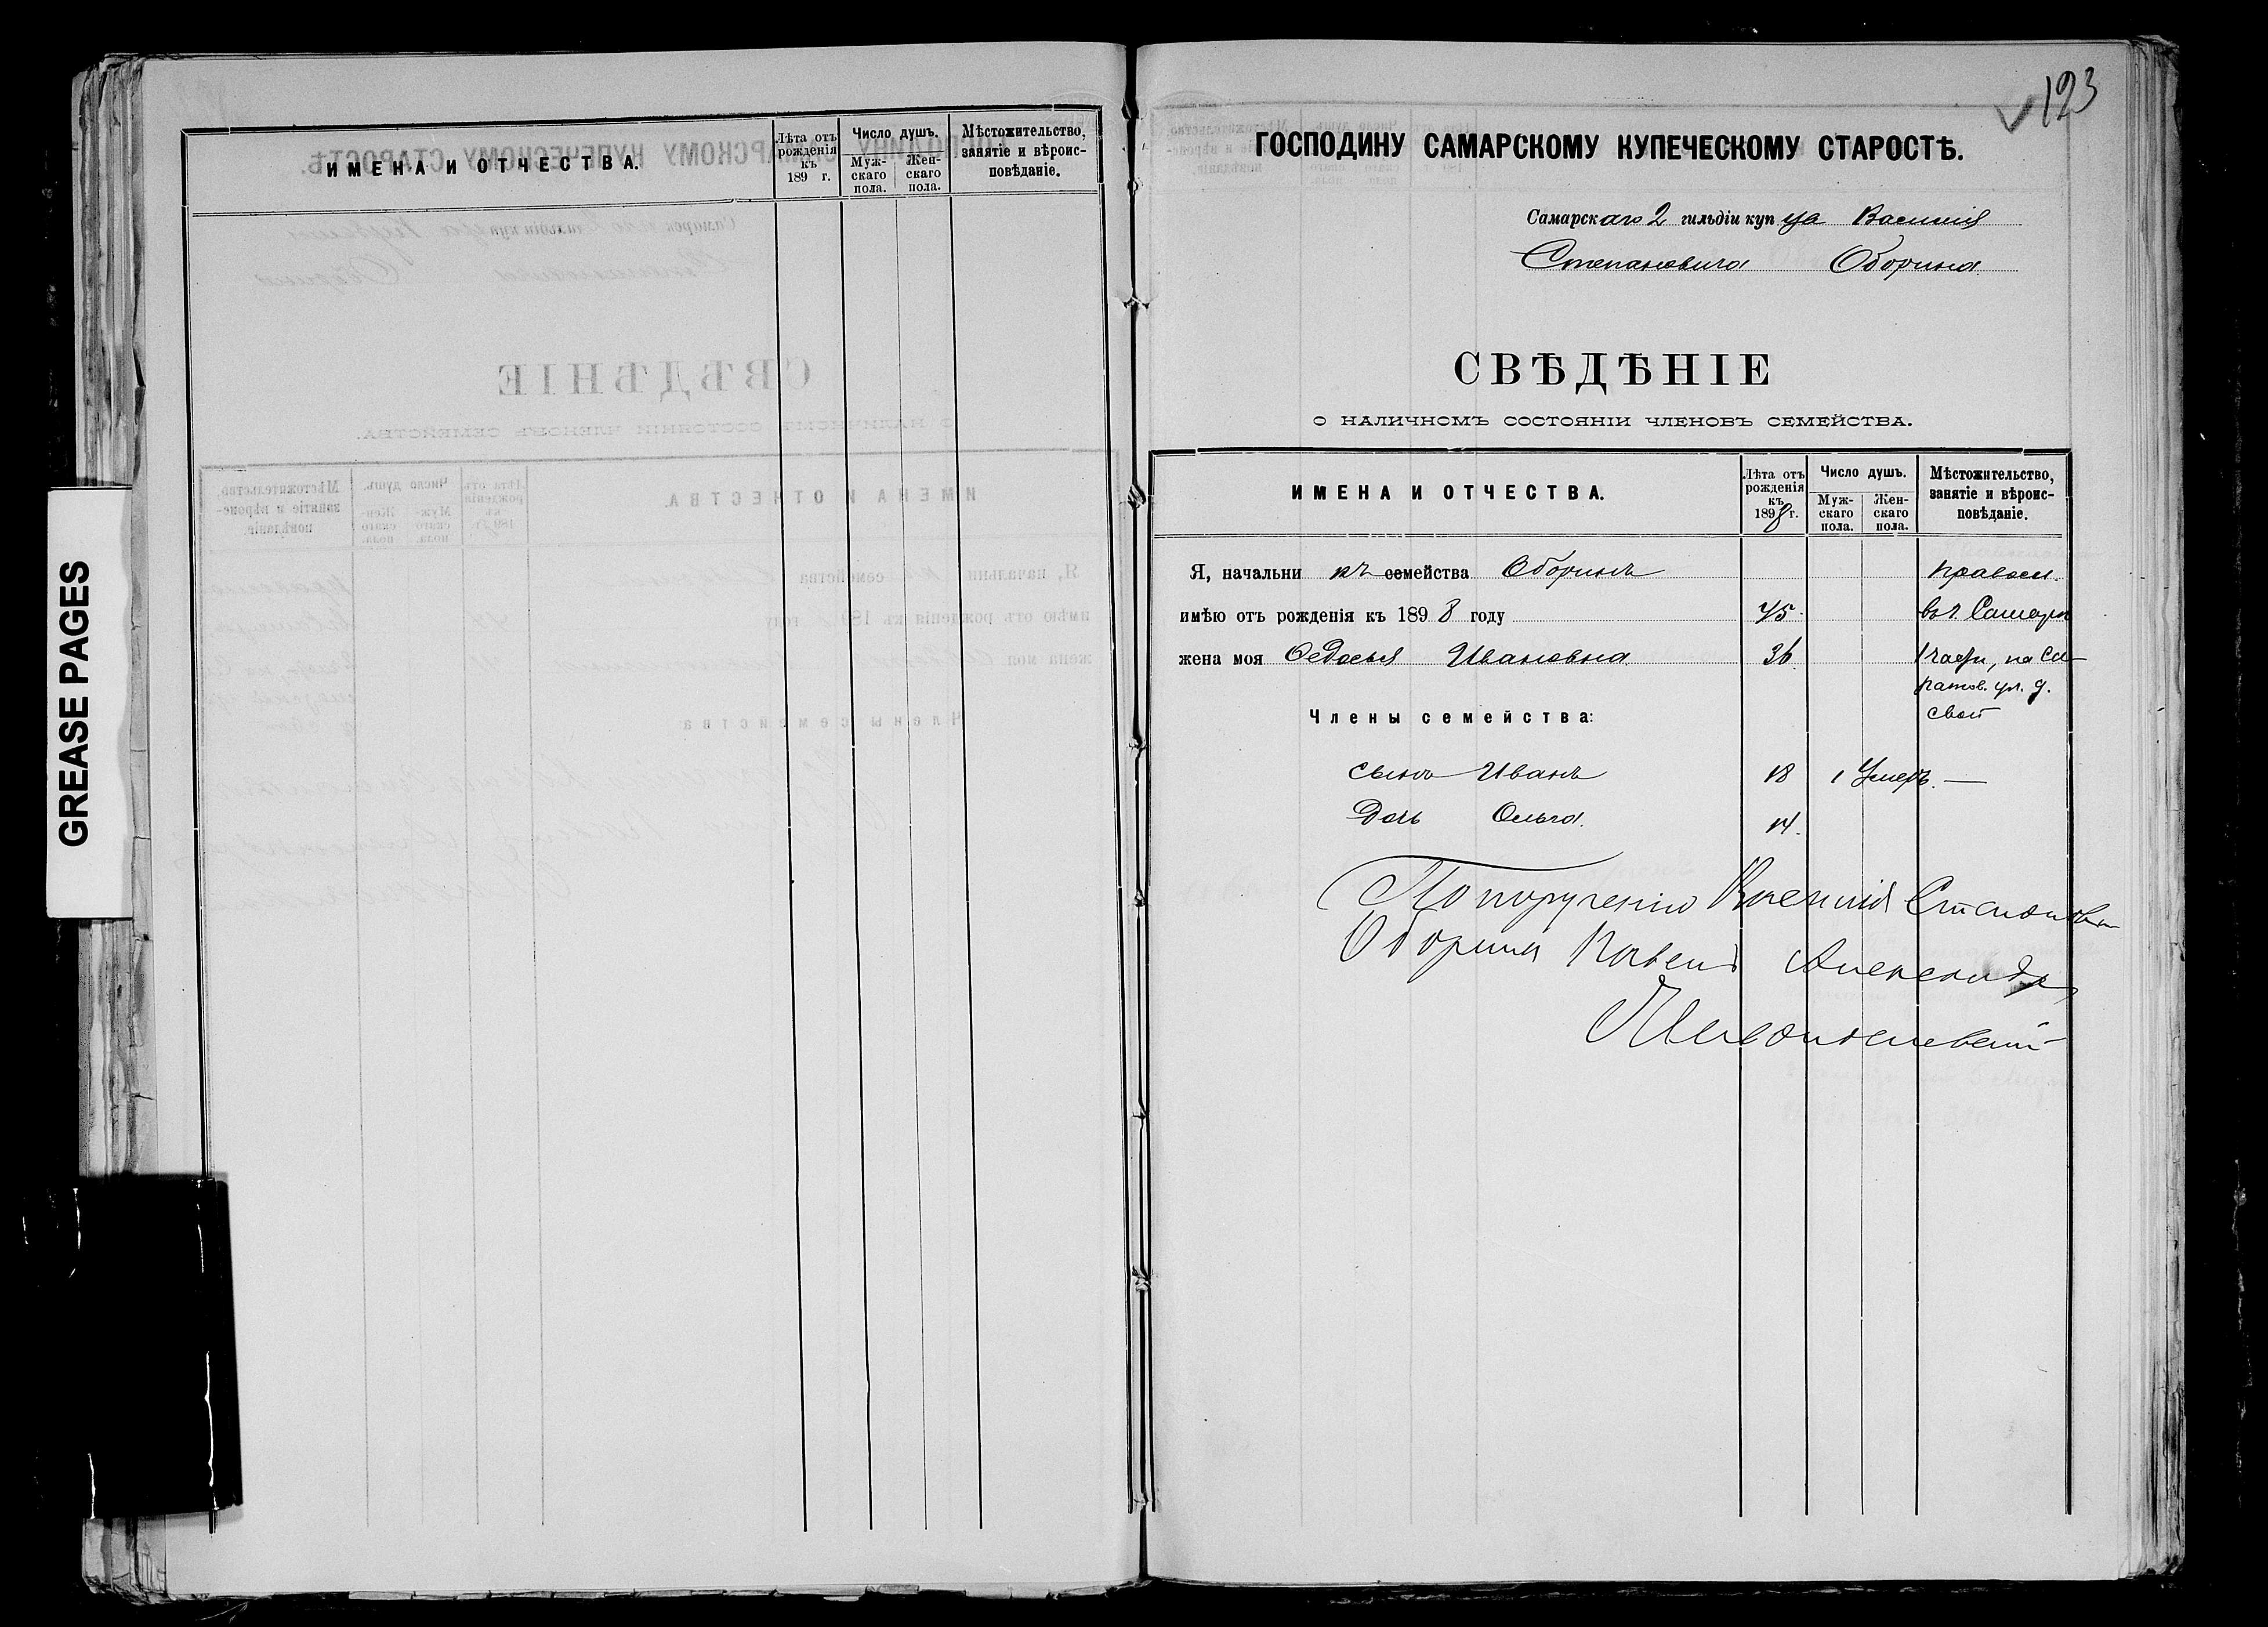 GREASE PAGES
ИМЕНА И ОТЧЕСТВА.
Лѣта отъ рожденія къ 189 г.
Число душъ.
Муж-скаго пола.
Жен-скаго пола.
Мѣстожительство, занятіе и вѣроис-повѣданіе.
123
ГОСПОДИНУ САМАРСКОМУ КУПЕЧЕСКОМУ СТАРОСТѢ.
Самарскаго 2 гильдіи купца Василія
Степановича Оборина
СВѢДѢНІЕ
О НАЛИЧНОМЪ СОСТОЯНІИ ЧЛЕНОВЪ СЕМЕЙСТВА.
ИМЕНА И ОТЧЕСТВА.
Лѣта отъ рожденія къ 1898 г.
Число душъ.
Муж-скаго пола.
Жен-скаго пола.
Мѣстожительство, занятіе и вѣроис-повѣданіе.
Я, начальникъ семейства Оборинъ правосл.
имѣю отъ рожденія къ 1898 году 45. въ г. Самарѣ
жена моя Ѳедосья Ивановна 36. 1 части, на Са-
ратов. ул. д.
свой
Члены семейства:
сынъ Иванъ 18 1 Умеръ. —
Дочь Ольга. 14.
По порученію Василія Степанови
Оборина Павелъ Александр